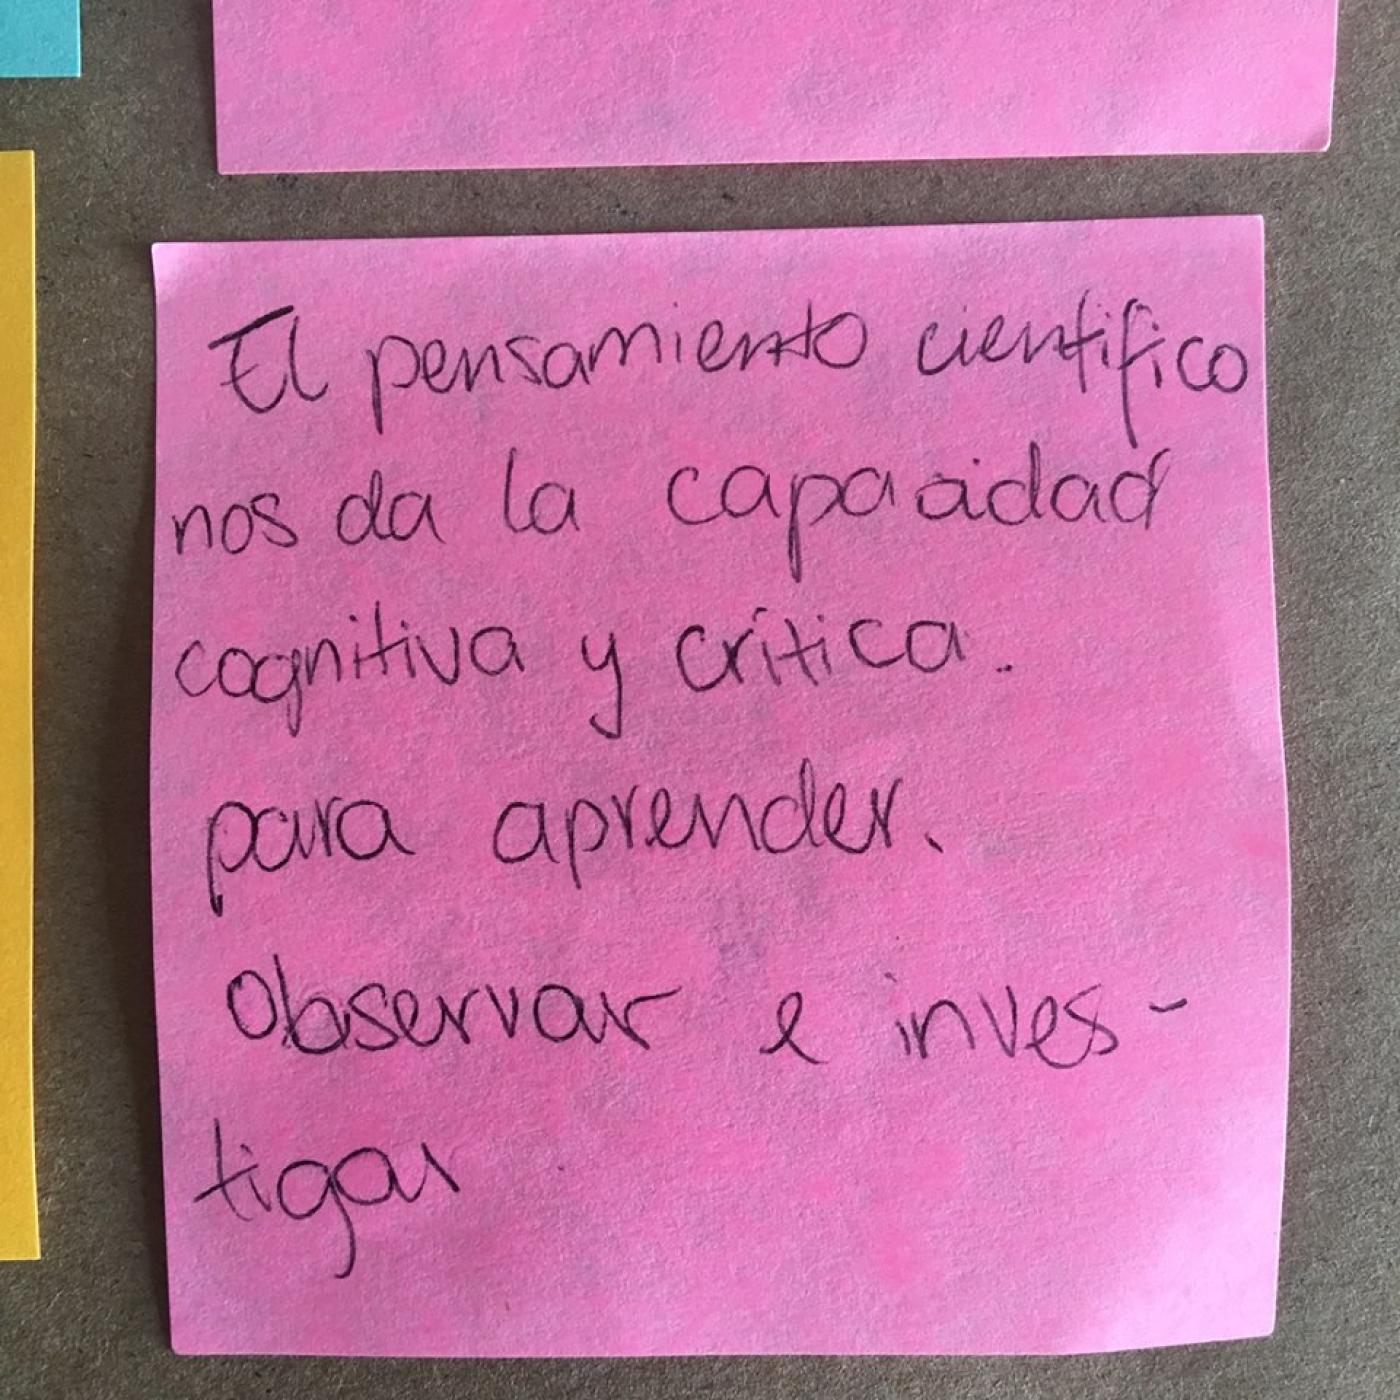 El pensamiento cientifico
nos da la capacidad
cognitiva y crítica.
para aprender.
Observar e inves-
tigar